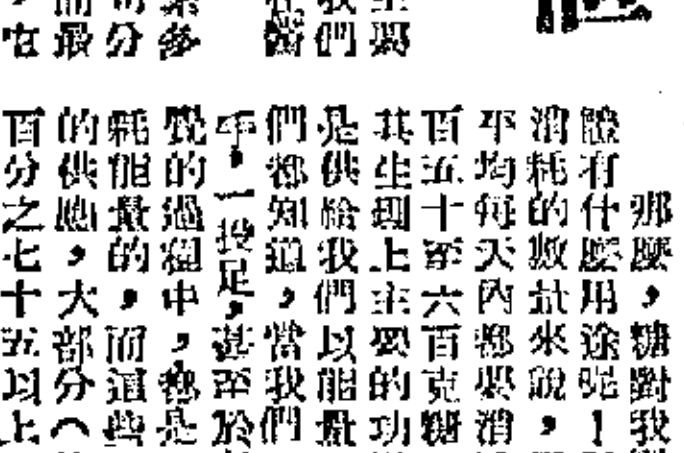 要
們
多
分
最
那麼，糖對我
體有什麼用途呢！
消耗的數量來說，
平均每天內都要消
百五十至六百克糖
其生理上主要的功
是供給我們以能量
們都知道，當我們
手，一投足，甚至於
覺的過程中，都是
耗能量的，而這些
的供應，大部分（
百分之七十五以上